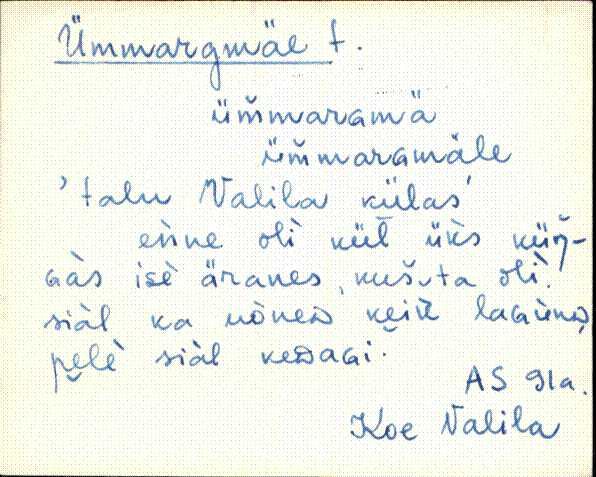 Ümmargmäe t.
üm̆maraɢmä
üm̆maraɢmäle
'talu Valila külas'
eǹne olì kül̆ ük̀s küŋ̆-
ɢàs isè äranes, kus ta olì.
siàl ka nòneᴅ kei̬k laɢùnᴅ,
pe̬lè siàl keᴅaɢi.
AS 91a.
Koe Valila